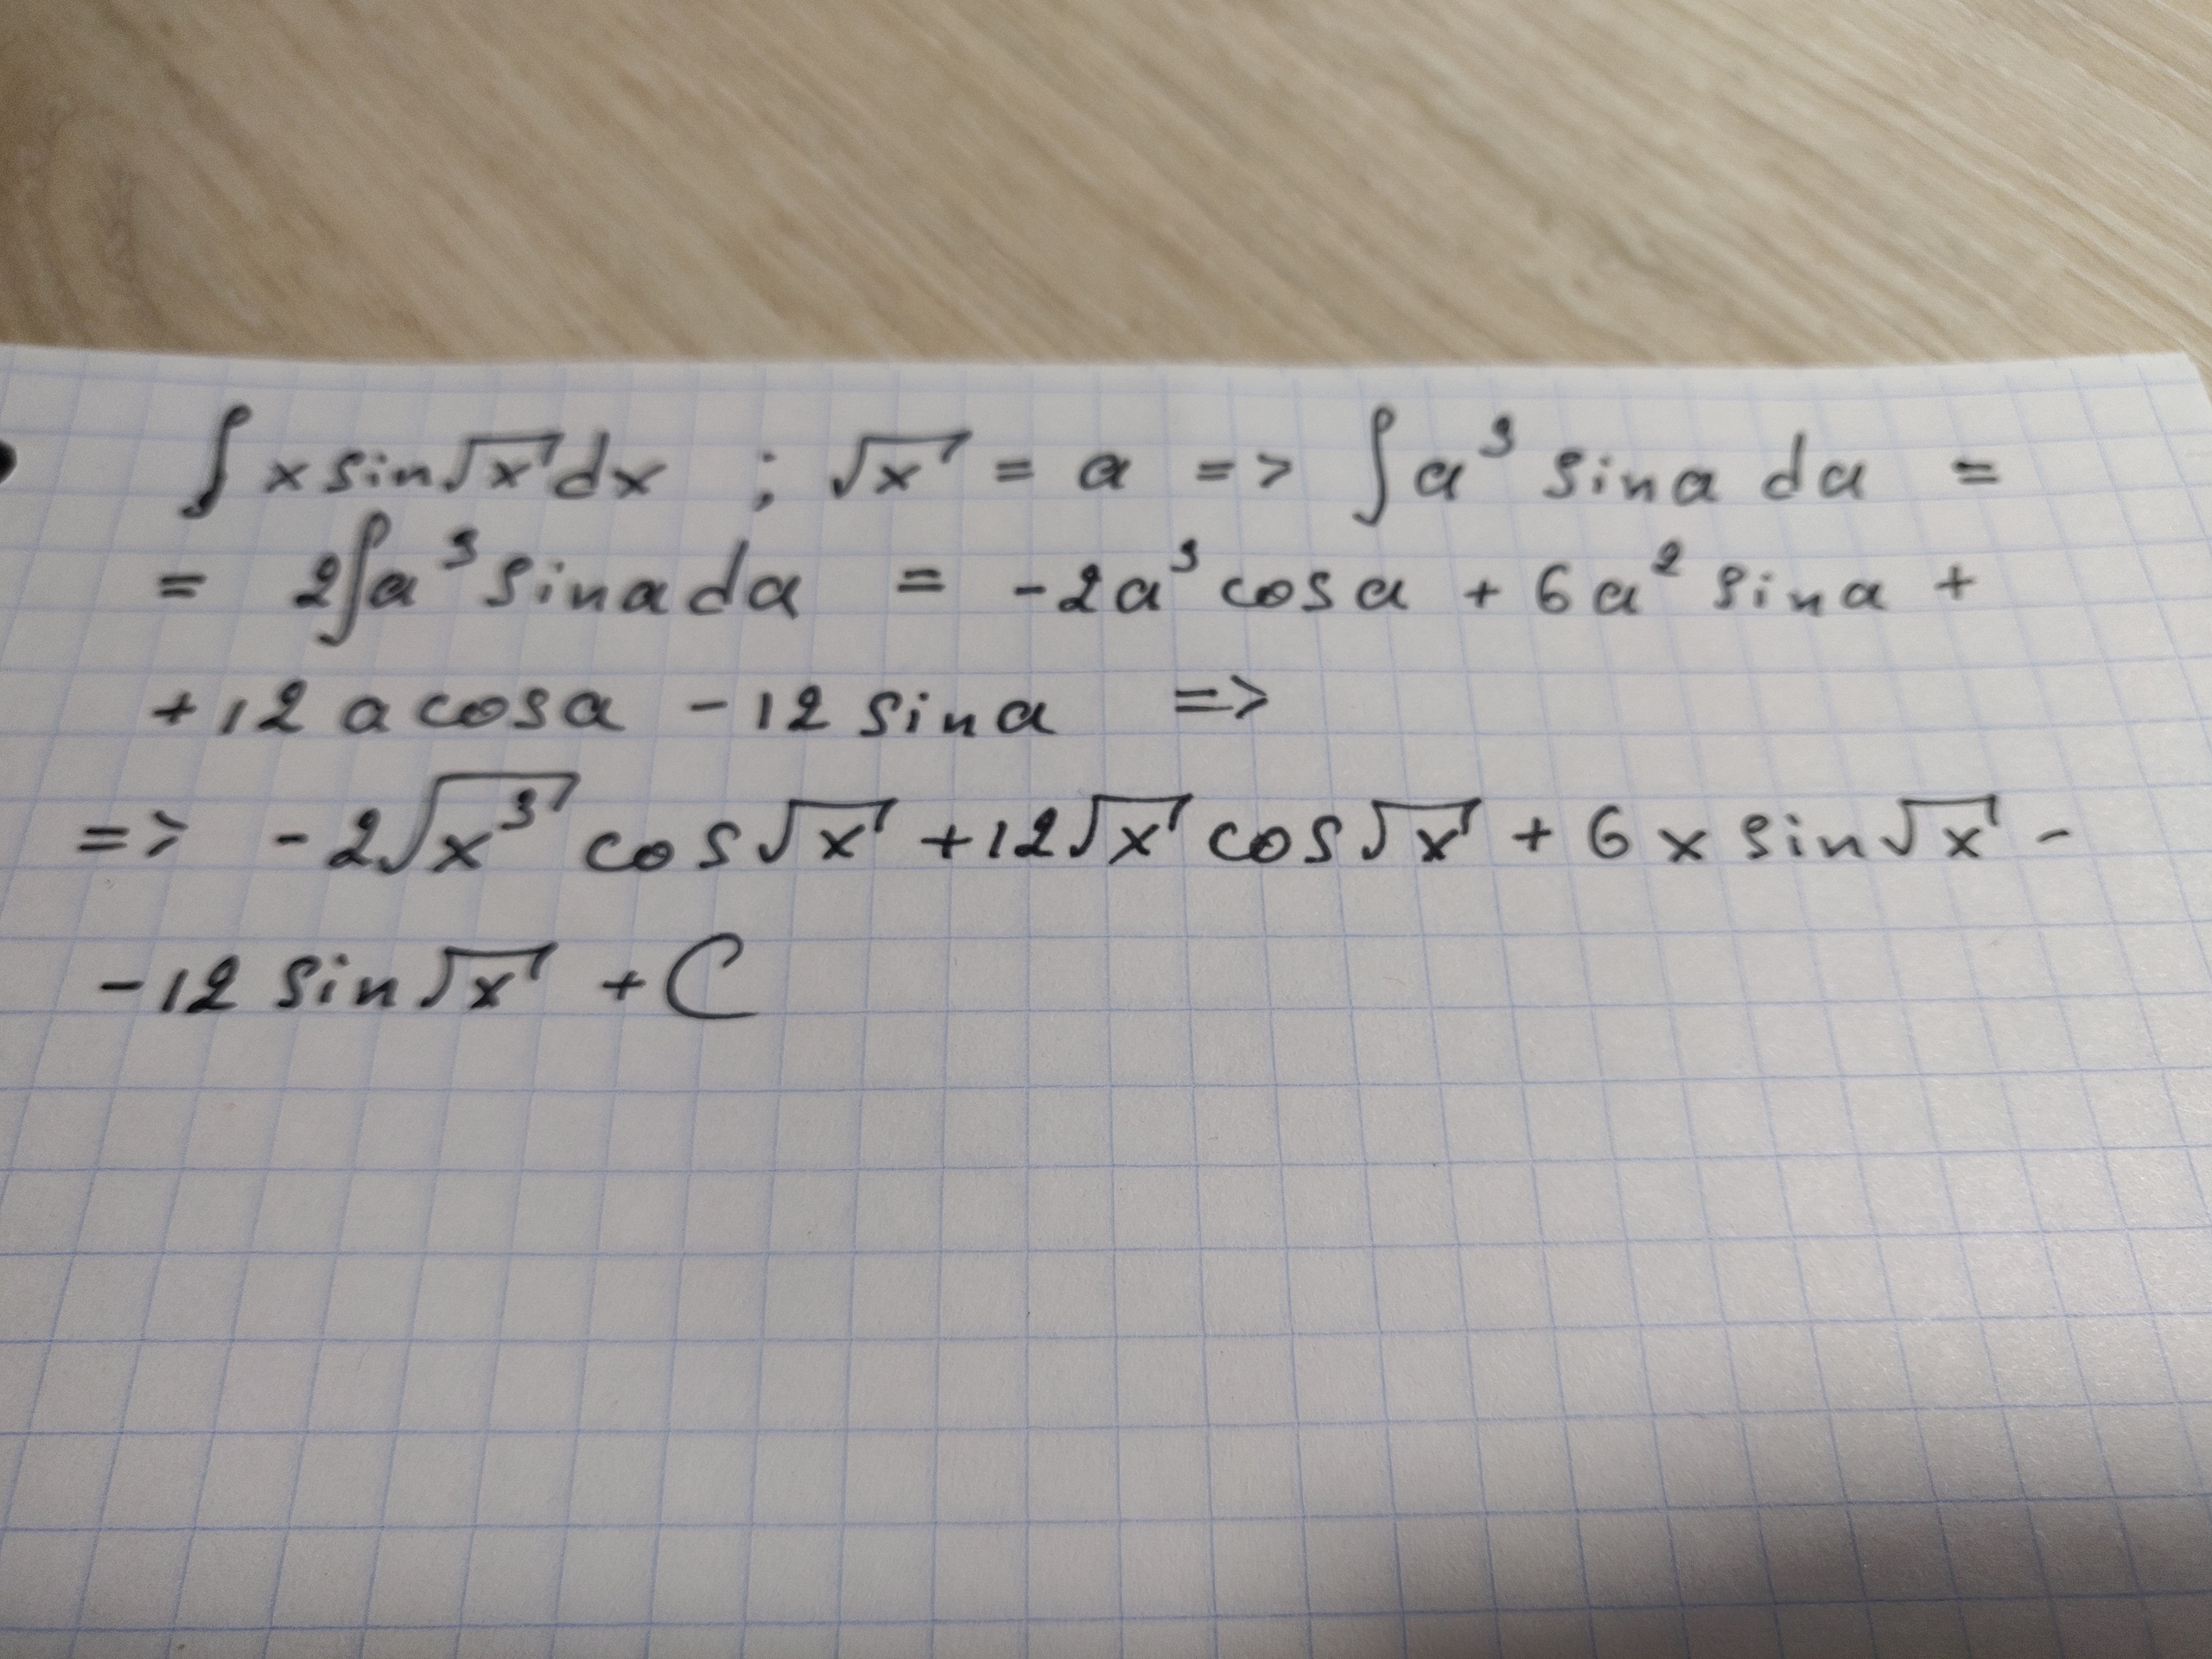 ∫ x sin√x dx ; √x = a => ∫ a³ sin a da =
= 2∫a³ sin a da = -2a³ cos a + 6a² sin a +
+12 a cos a - 12 sin a =>
=> -2√x³ cos√x + 12√x cos√x + 6 x sin√x -
-12 sin√x + C